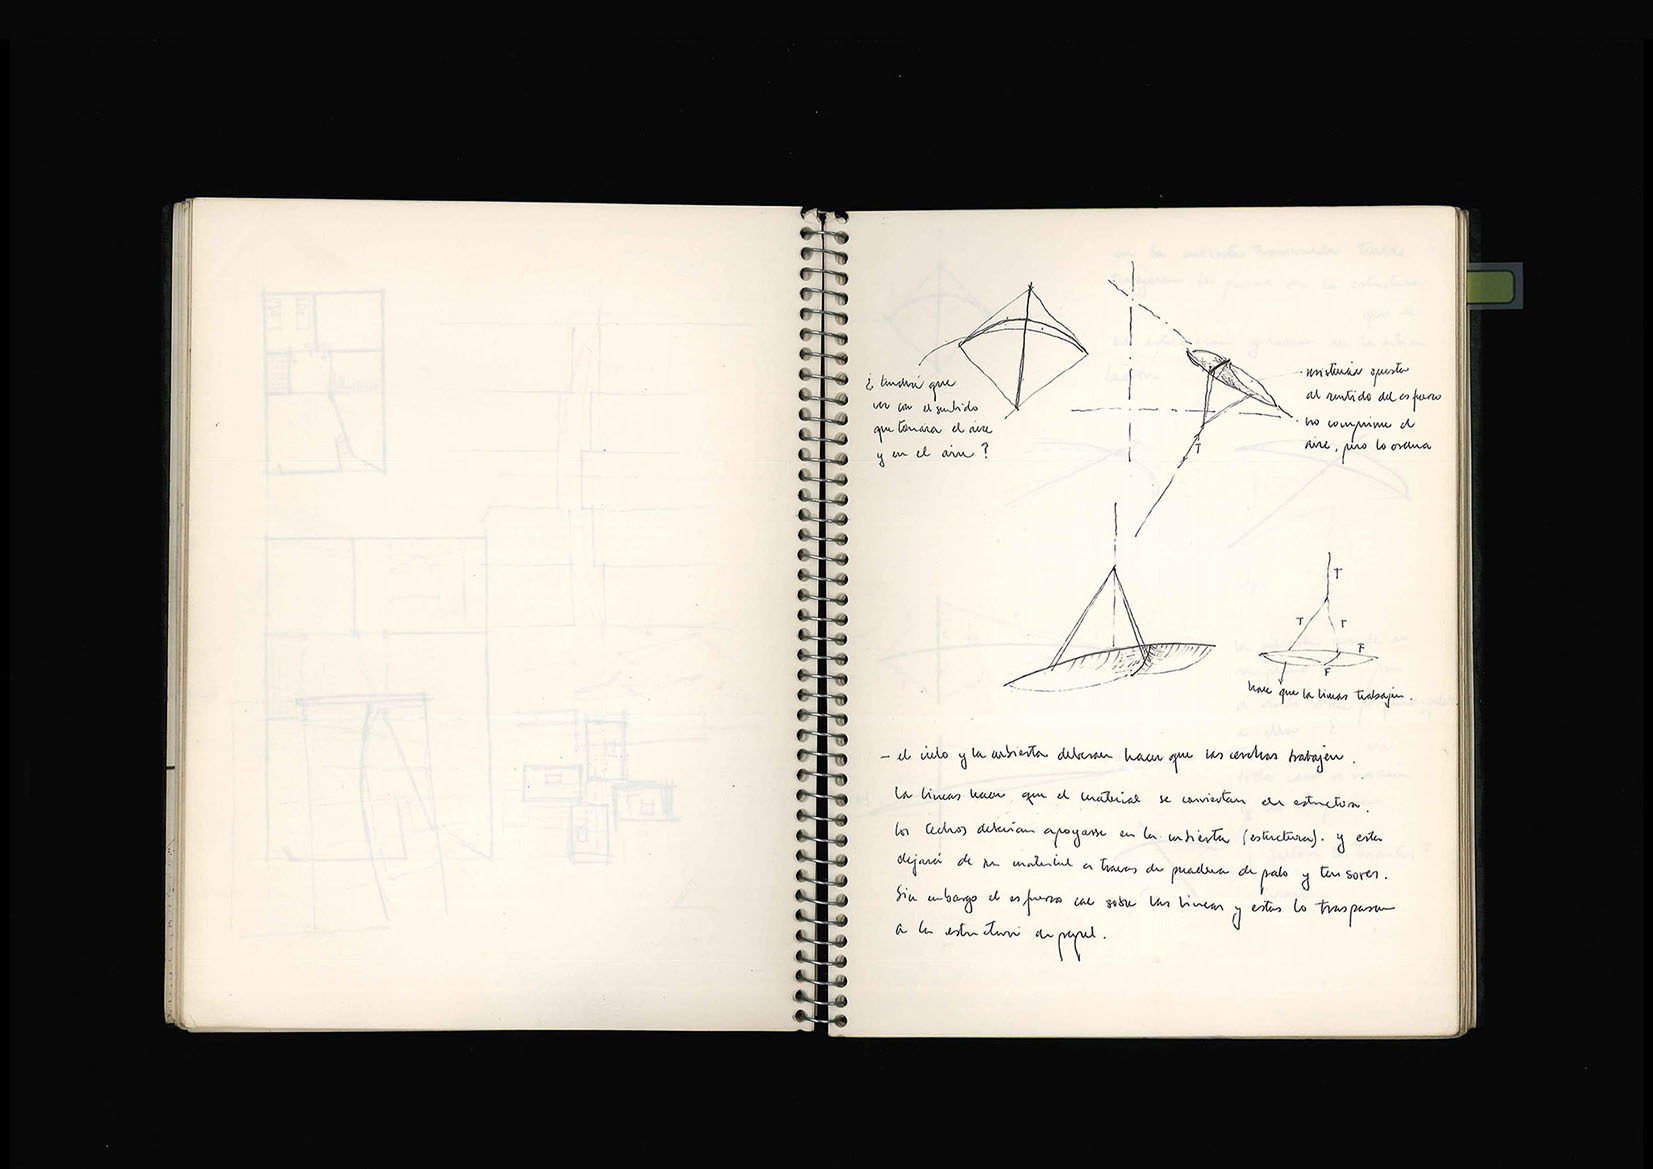 ¿ tendrá que
ver con el sentido
que tomara el aire
y en el aire ?
resistencia opuesta
al sentido del esfuerzo
no comprime el
aire, pero lo ordena
T
T
T
T
F
F
hace que la lineas trabajen.
– el cielo y la cubierta deberan hacer que las cerchas trabajen.
la lineas hacen que el material se conviertan en estructura.
los techos deberian apoyarse en la cubierta (estructura). y esta
dejará de ser material a traves de madera de palo y tensores.
Sin embargo el esfuerzo cae sobre las lineas y estas lo traspasan
a la estructura de papel.